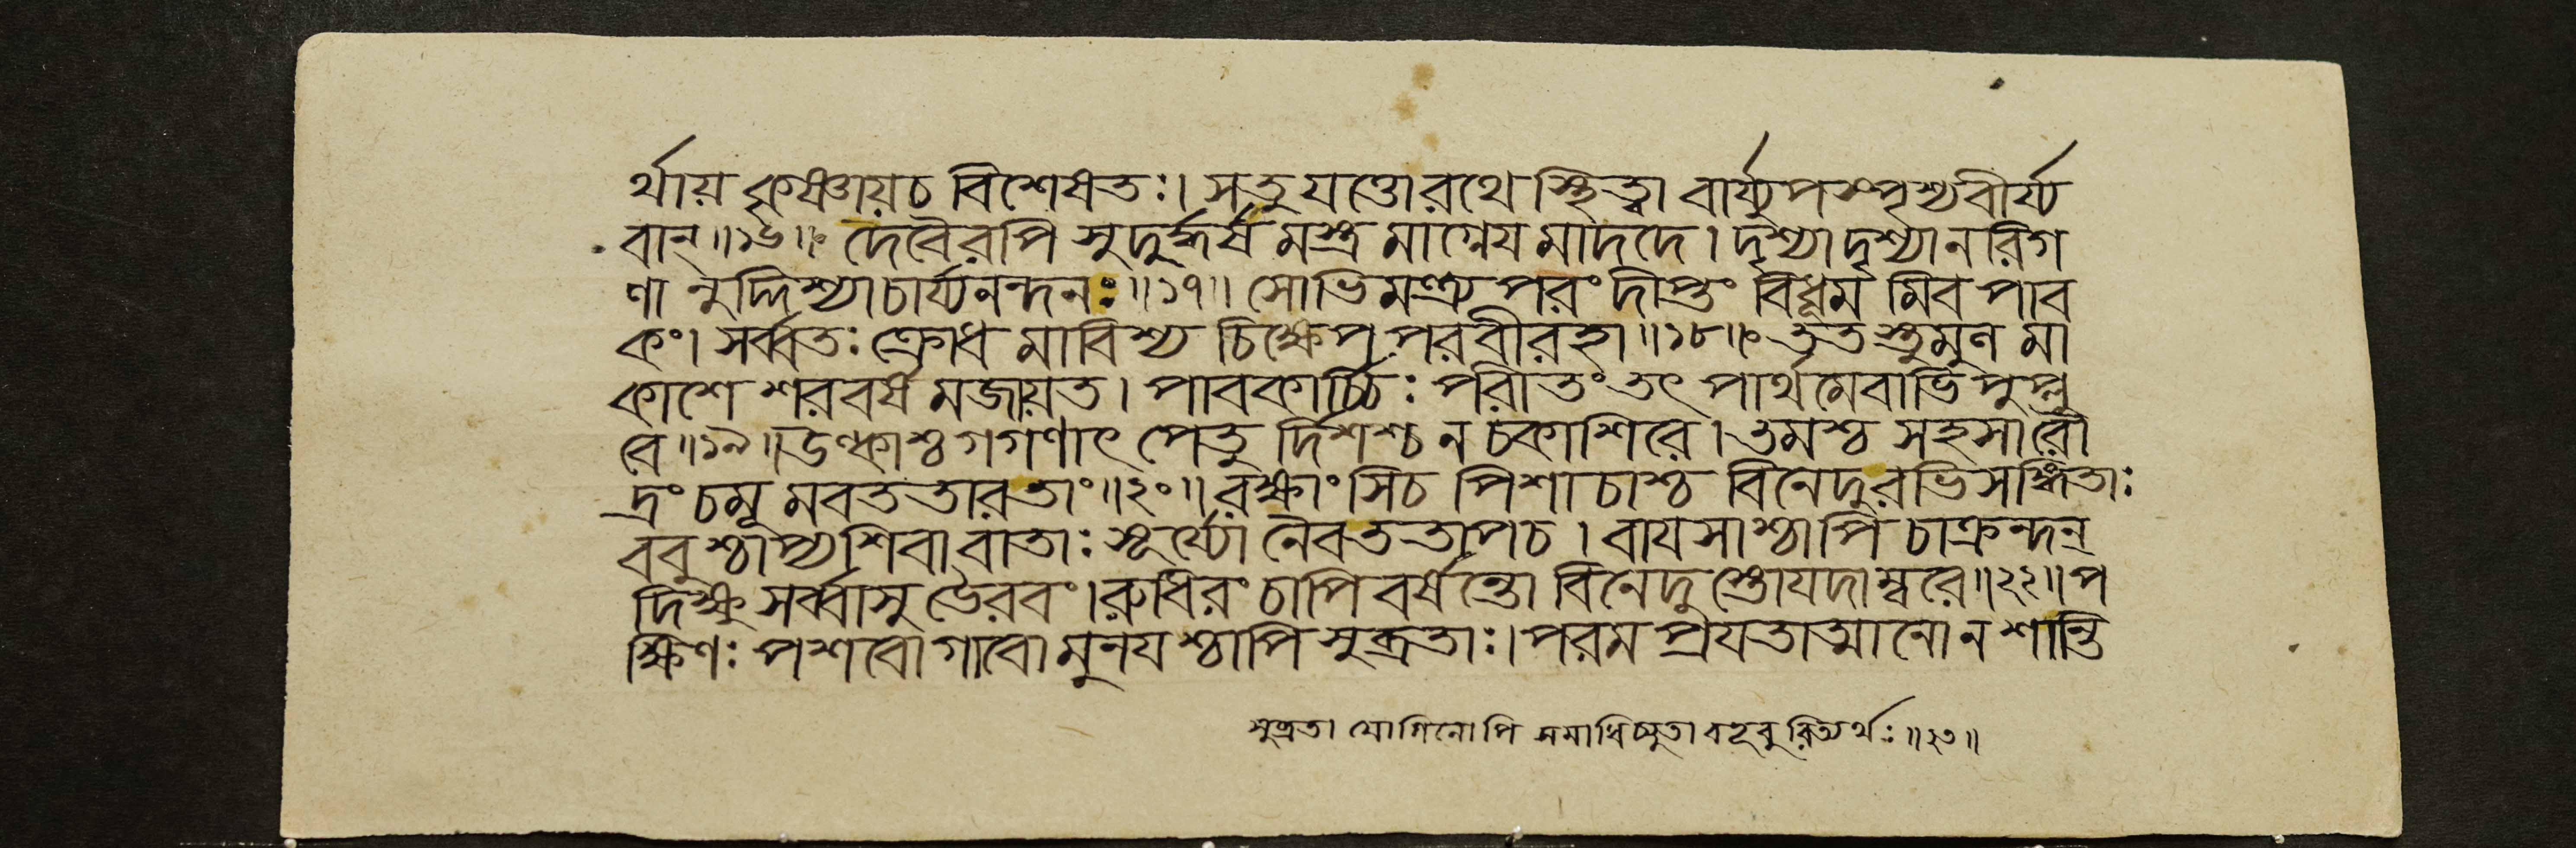 র্থায় কৃষ্ণায়চ বিশেষতঃ। সতু যত্তোরথে স্থিত্বা বার্য্যুপস্পৃশ্যবীর্য্য
বান্॥১৬॥ দেবৈরপি সুদুর্দ্ধর্ষ মস্ত্র মাগ্নেয মাদদে। দৃশ্যাদৃশ্যানরিগ
ণা নুদ্দিশ্যাচার্য্যনন্দনঃ॥১৭॥ সোভিমন্ত্র্য পরং দীপ্তং বিধূম মিব পাব
কং। সর্ব্বতঃ ক্রোধ মাবিশ্য চিক্ষেপ পরবীরহা॥১৮॥ তত স্তুমুন মা
কাশে শরবর্ষ মজায়ত। পাবকার্চ্চিঃ পরীতং তৎ পার্থমেবাভিপুপ্লু
বে॥১৯॥ উল্কাশ্চ গগণাৎ পেতু র্দিশশ্চ ন চকাশিরে। তমশ্চ সহসা রৌ
দ্রং চমূ মবততারতাং॥২০॥ রক্ষাংসিচ পিশাচাশ্চ বিনেদুরভিসঙ্গতাঃ
ববুশ্চাপ্যশিবা বাতাঃ সূর্য্যো নৈবততাপচ। বাযসাশ্চাপি চাক্রন্দন্
দিক্ষু সর্ব্বাসু ভৈরবং। রুধিরং চাপি বর্ষন্তো বিনেদু স্তোযদাম্বরে॥২২॥ প
ক্ষিণঃ পশবো গাবো মুনয শ্চাপি সুব্রতাঃ। পরম প্রযতাত্মানো ন শান্তি
সুব্রতা যোগিনোপি সমাধিচ্যুতা বহূবুরিত্যর্থঃ॥২৩॥